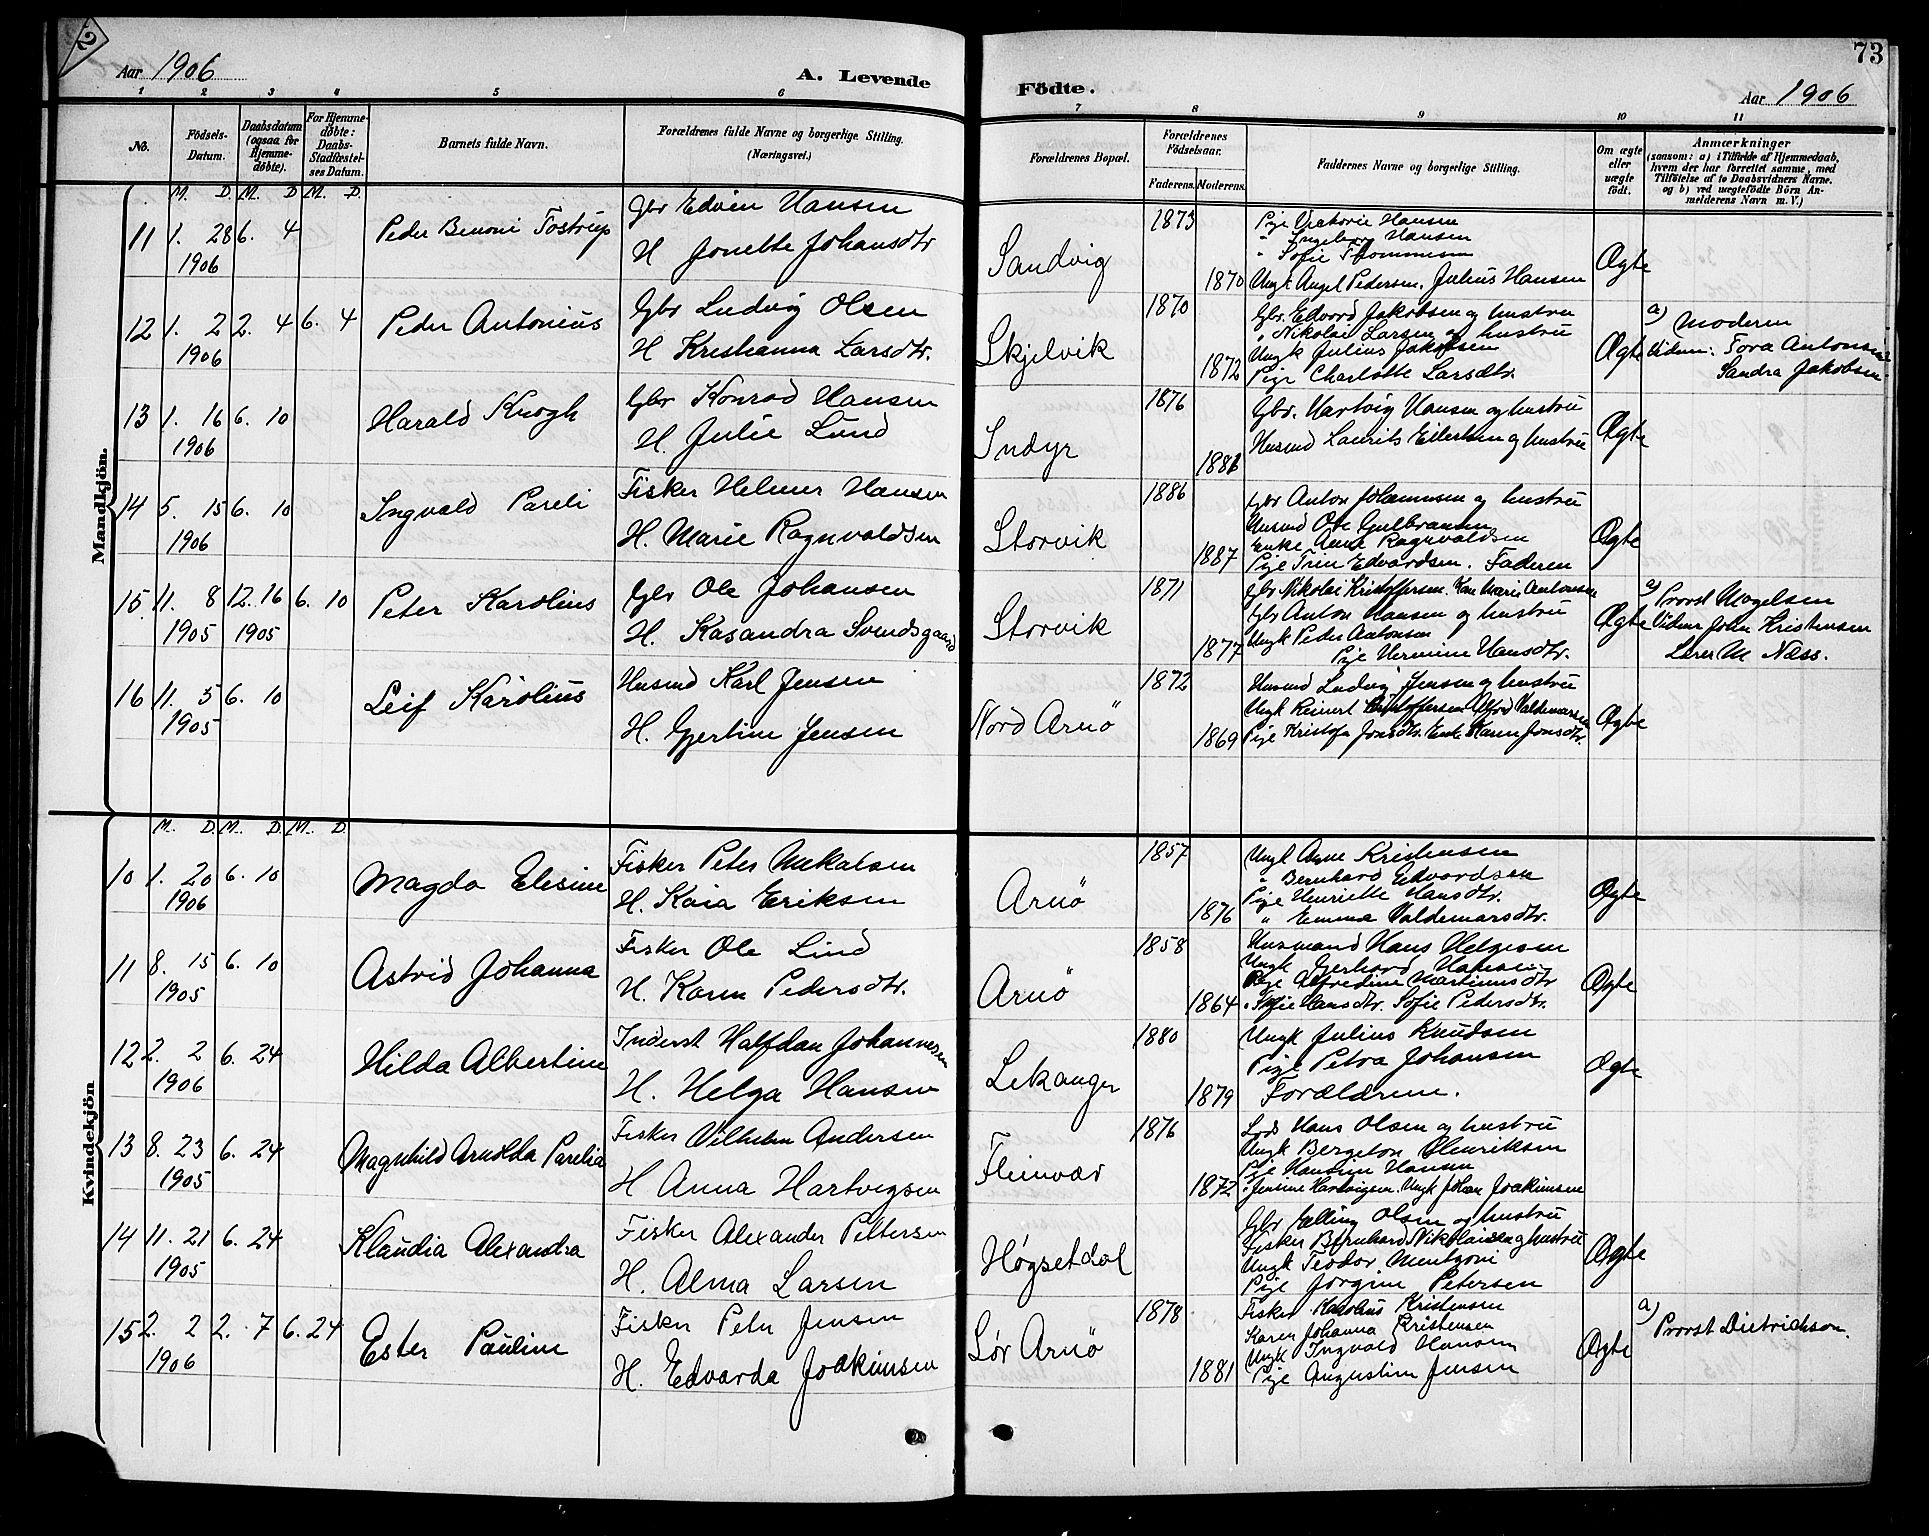 73
Aar 1906
A. Levende
Födte.
Aar 1906
1 2 3 4 5 6 7 8 9 10 11
No.
Födsels-Datum.
Daabsdatum (ogsaa for Hjemmedöbte).
For Hjemmedöbte: Daabs-Stadfæstelses Datum.
Barnets fulde Navn.
Forældrenes fulde Navne og borgerlige Stilling. (Næringsvei.)
Forældrenes Bopæl.
Forældrenes Födselsaar.
Faderens. Moderens.
Faddernes Navne og borgerlige Stilling.
Om ægte eller uægte födt.
Anmærkninger
(saasom: a) i Tilfælde af Hjemmedaab, hvem der har forrettet samme, med Tilföielse af to Daabsvidners Navne. og b) ved uægtefödte Börn Anmelderens Navn m. V.)
Mandkjön.
M. D. M. D M. D.
11 1. 28 6. 4
1906
Peder Benoni Tostrup
Gbr Edvin Hansen
H Jonette Johansdtr
Sandvig
1873
1870
Pige Viktorie Hansen
" Ingeborg Hansen
" Sofie Thommesen
Ungk Angel Pedersen. Julius Hansen
Ægte
12 1. 2 2. 4 6. 4
1906
Peder Antonius
Gbr Ludvig Olsen
H Kristianna Larsdtr.
Skjelvik
1870
1872
Gbr. Edvard Jakobsen og hustru
" Nikolai Larsen og hustru
Ungk Julius Jakobsen
Pige Charlotte Larsdtr.
Ægte
a) Moderen
Vidner: Tora Antonsen
Sandra Jakobsen
13 1. 16 6. 10
1906
Harald Krogh
Gbr Konrad Hansen
H. Julie Lund
Indyr
1876
1881
Gbr. Hartvig Hansen og hustru
Husmd Laurits Eilertsen og hustru
Ægte
14 5. 15 6. 10
1906
Ingvald Pareli
Fisker Helmer Hansen
H. Marie Ragnvaldsen
Storvik
1886
1887
Gbr Anton Johannesen og hustru
Husmd Ole Gulbransen
Enke Anne Ragnvaldsen
Pige Trine Edvardsen. Faderen
Ægte
15. 11. 8 12. 16 6. 10
1905 1905
Peter Karolius
Gbr Ole Johansen
H. Kasandra Svendsgaard
Storvik
1871
1877
Gbr Nikolai Kristoffersen. Kone Maris Antonsen
Gbr Anton Hansen og hustru
Ungk Peder Antonsen
Pige Hermine Hansdtr.
Ægte
a) Provst Mogelsen
Vidner John Kristensen
Lærer M Næss.
16 11. 5 6. 10
1905
Leif Karolius
Husmd Karl Jensen
H. Gjertine Jensen
Nord Arnö
1872
1869
Husmd Ludvig Jensen og hustru
Ungk Reinert Kristoffersen Alfred Valdemarsen
Pige Kristofa Jonsdtr. Enke Karen Jonsdtr.
Ægte
Kvindekjön
M. D. M. D. M. D.
10 1. 20 6. 10
1906
Magda Elesine
Fisker Peter Mikalsen
H. Kaia Eriksen
Arnö
1857
1876
Ungk Arne Kristensen
" Bernhard Edvardsen
Pige Henriette Hansdtr.
" Emma Valdemarsdtr.
Ægte
11 8. 15 6. 10
1905
Astrid Johanna
Fisker Ole Lind
H. Karen Pedersdtr.
Arnö
1858
1864
Husmand Hans Helgesen
Ungk Gerhard Hansen
Pige Alfredine Martinusdtr
" Sofie Hansdtr. Sofie Pedersdtr.
Ægte
12 2. 2 6. 24
1906
Hilda Albertine
Inderst Halfdan Johannesen
H. Helga Hansen
Lekanger
1880
1879
Ungk Julius Knudsen
Pige Petra Johansen
Forældrene.
Ægte
13 8. 23 6. 24
1905
Magnhild Arnolda Parelia
Fisker Vilhelm Andersen
H Anna Hartvigsen
Fleinvær
1876
1872
Lods Hans Olsen og hustru
Ungk Bergeton Henriksen
Pige Hansine Hansen
" Jensine Hartvigsen. Ungk Johan Joakimsen
14 11. 21 6. 24
1905
Klaudia Alexandra
Fisker Alexander Pettersen
H. Alma Larsen
Høgsetdal
Gbr Elling Olsen og hustru
Fisker Bernhard Nikolaisen og hustru
Ungk Teodor Mentzoni
Pige Jørgine Petersen
Ægte
15 2. 2 2. 7 6. 24
1906
Ester Pauline
Fisker Peter Jensen
H. Edvarda Joakimsen
Sør Arnö
1878
1881
Fisker Karolius Kristensen
Karen Johanna Kristensen
Ungk Ingvald Hansen
Pige Augustine Jensen
Ægte
a) Provst Dietrichson.